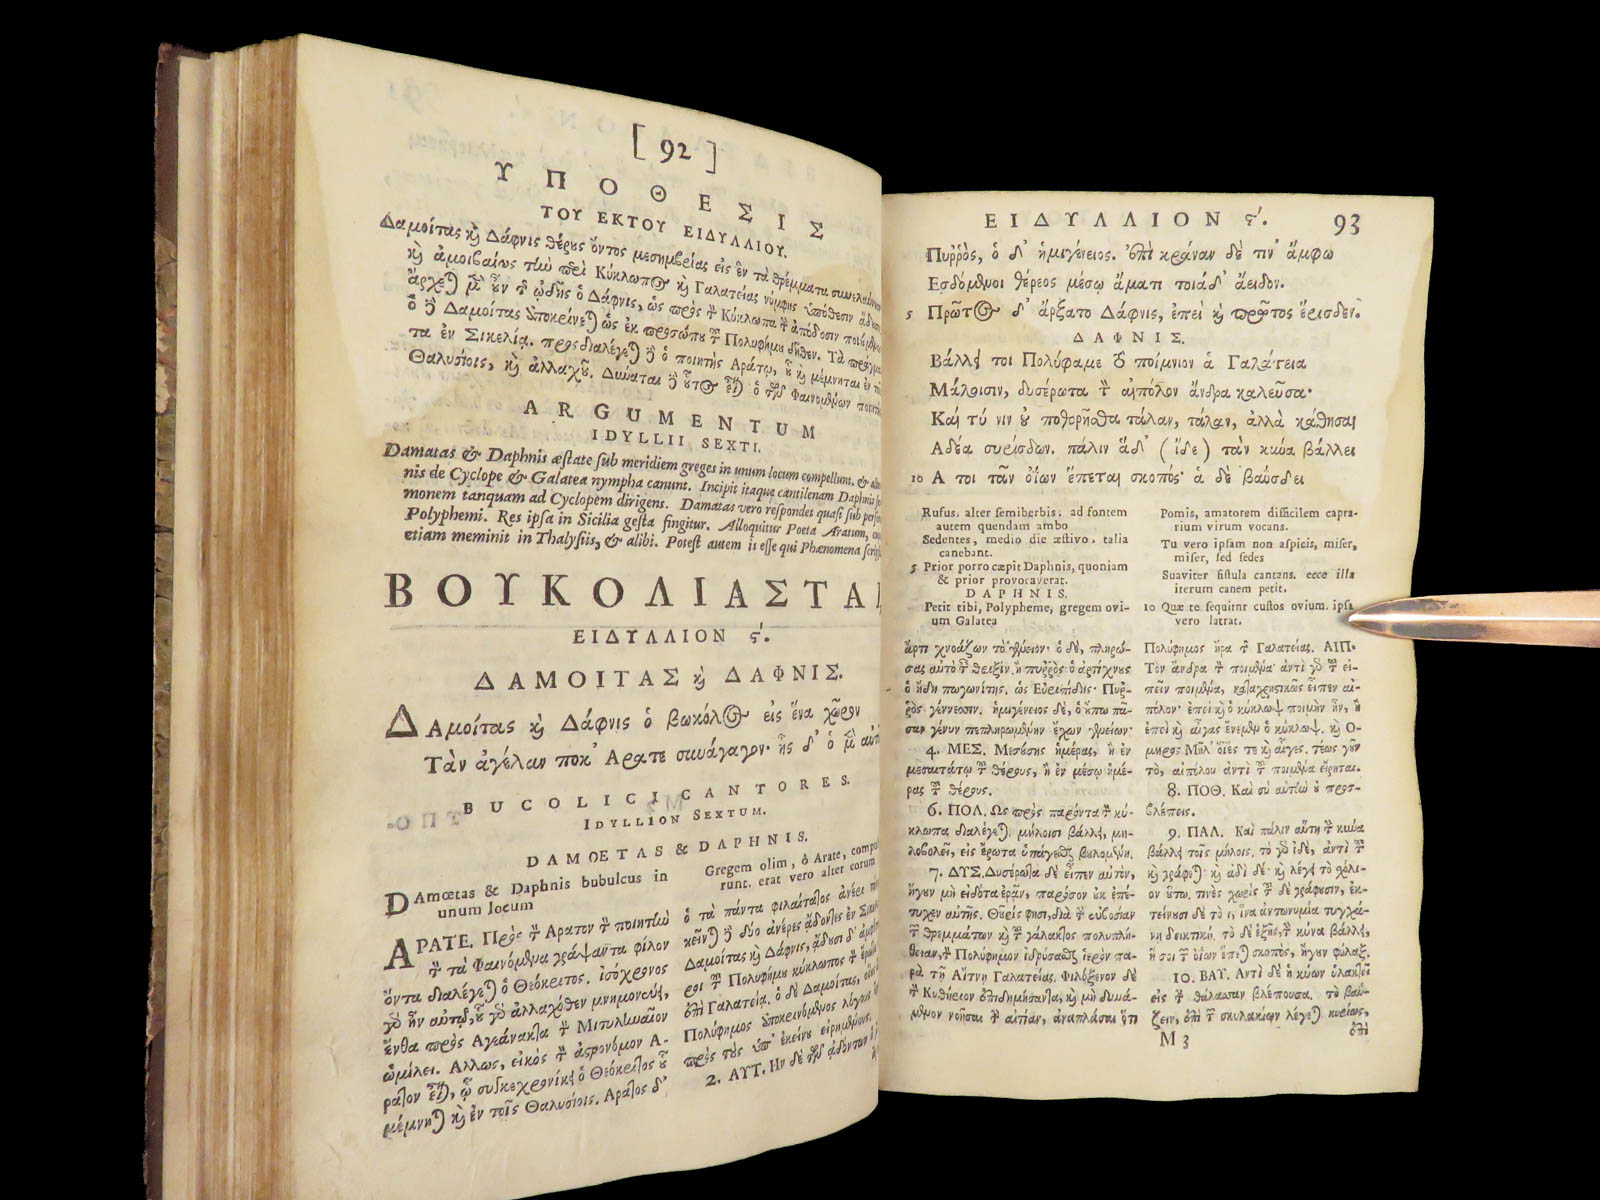 [ 92 ]
ΥΠΟΘΕΣΙΣ
ΤΟΥ ΕΚΤΟΥ ΕΙΔΥΛΛΙΟΥ.
Δαμοίτας καὶ Δάφνις θέρους ὄντος μεσημβρίας εἰς ἓν τὰ θρέμματα
καὶ ἀμοιβαίως τὴν περὶ Κύκλωπος καὶ Γαλατείας νύμφης ὑπόθεσιν
ἄρχεται μὲν οὖν τῆς ᾠδῆς ὁ Δάφνις, ὡς πρὸς τὸν Κύκλωπα τὴν ἀπόδοσιν
ὁ δὲ Δαμοίτας ὑποκρίνεται ὡς ἐκ προσώπου τοῦ Πολυφήμου δῆθεν. Τὰ
τα ἐν Σικελίᾳ. προσδιαλέγεται δὲ ὁ ποιητὴς Αράτῳ, οὗ καὶ μέμνηται ἐν
Θαλυσίοις, καὶ ἀλλαχοῦ. Δύναται δὲ οὗτος εἶναι ὁ τῶν Φαινομένων
ARGUMENTUM
IDYLLII SEXTI.
Damatas & Daphnis æstate sub meridiem greges in unum locum compellunt. &
nis de Cyclope & Galatea nympha canunt. Incipit itaque cantilenam Daphnis
monem tanquam ad Cyclopem dirigens. Damatas vero respondet quasi sub
Polyphemi. Res ipsa in Sicilia gesta fingitur. Alloquitur Poeta Aratum,
etiam meminit in Thalysiis, & alibi. Potest autem is esse qui Phænomena
ΒΟΥΚΟΛΙΑΣΤΑΙ,
ΕΙΔΥΛΛΙΟΝ ϛʹ.
ΔΑΜΟΙΤΑΣ καὶ ΔΑΦΝΙΣ.
ΔΑμοίτας καὶ Δάφνις ὁ βωκόλος εἰς ἕνα χῶρον
Τὰν ἀγέλαν ποκ' Αρατε συνάγαγον· ἦς δ' ὁ μὲν
BUCOLICI CANTORES.
IDYLLION SEXTUM.
DAMOETAS & DAPHNIS.
DAmœtas & Daphnis bubulcus in
unum locum
Gregem olim, ô Arate,
runt. erat vero alter eorum
ΑΡΑΤΕ. Πρὸς τὸν Αρατον τὸν ποιητὴν
τὸν τὰ Φαινόμενα γράψαντα φίλον
ὄντα διαλέγεται ὁ Θεόκριτος. ἰσόχρονος
γὰρ ἦν αὐτῷ, ὃ γὰρ ἀλλαχόθεν μνημονεύει,
ἔνθα πρὸς Αγεάνακτα τὸν Μιτυληναῖον
ὡμίλει. Αλλως, εἰκὸς τὸν ἀστρονόμον Α-
ρατον εἶναι, ᾧ συγκεχρόνικεν ὁ Θεόκριτος οὗ
μέμνηται καὶ ἐν τοῖς Θαλυσίοις. Αρατος δ'
ὁ τὰ πάντα φιλαίτατος ἀνέρι
κεῖνται δὲ δύο ἀνέρες ᾄδοντες ἐν
Δαμοίτας καὶ Δάφνις, ᾄδουσι δ'
τοῦ Πολυφήμου κύκλωπος
ἐπὶ Γαλατείᾳ. ὁ δὲ Δαμοίτας,
Πολύφημος ὑποκρινόμενος λόγους
πρὸς τοὺς ὑπ' ἐκείνου εἰρημένους.
2. ΑΥΤ. Ην δὲ τῶν ᾀδόντων
ΕΙΔΥΛΛΙΟΝ ϛʹ. 93
Πυῤῥὸς, ὁ δ' ἡμιγένειος. ἐπὶ κράναν δέ τιν' ἄμφω
Εσδόμενοι θέρεος μέσῳ ἄματι τοιάδ' ἄειδον.
5 Πρᾶτος δ' ἄρξατο Δάφνις, ἐπεὶ καὶ πρᾶτος ἔρισδεν.
ΔΑΦΝΙΣ.
Βάλλει τοι Πολύφαμε τὸ ποίμνιον ἁ Γαλάτεια
Μάλοισιν, δυσέρωτα τὸν αἰπόλον ἄνδρα καλεῦσα·
Καὶ τύ νιν οὐ ποθορῆσθα τάλαν, τάλαν, ἀλλὰ κάθησαι
Αδέα συρίσδων. πάλιν ἅδ' (ἴδε) τὰν κύνα βάλλει
10 Α τοι τᾶν ὀΐων ἕπεται σκοπός· ἁ δὲ βαΰσδει
Rufus, alter semiberbis. ad fontem
autem quendam ambo
Sedentes, medio die æstivo, talia
canebant.
5 Prior porro cæpit Daphnis, quoniam
& prior provocaverat.
DAPHNIS.
Petit tibi, Polypheme, gregem ovi-
um Galatea
Pomis, amatorem difficilem capra-
rium virum vocans.
Tu vero ipsam non aspicis, miser,
miser, sed sedes
Suaviter fistula cantans. ecce illa
iterum canem petit,
10 Quæ te sequitur custos ovium. ipsa
vero latrat.
ἄρτι χνοάζων τὸ γένειον· ὁ δὲ, πληρώ-
σας αὐτὸ τοῦ τριξίν. ἢ πυῤῥὸς ὁ ἀρτίχνους
ὁ ἤδη πωγωνίτης. ὡς Εὐριπίδης· Πυρ-
ῥὸς γένεσιν. ἡμιγένειος δὲ, ὁ οὔπω πᾶ-
σαν γένυν πεπληρωμένην ἔχων γενείων·
4. ΜΕΣ. Μεσούσης ἡμέρας, ἢ ἐν
μεσαιτάτῳ τοῦ θέρους, ἢ ἐν μέσῳ ἡμέ-
ρας τοῦ θέρους.
6. ΠΟΛ. Ως πρὸς παρόντα τὸν κύ-
κλωπα διαλέγεται. μήλοισι βάλλει, μη-
λοβολεῖ, εἰς ἔρωτα ὑπάγεσθαι βουλομένη.
7. ΔΥΣ. Δυσέρωτα δὲ εἶπεν αὐτὸν,
ἤγουν μὴ εἰδότα ἐρᾷν, παρόσον οὐκ ἐπέ-
τυχεν αὐτῆς. Θοῦρίς φησι, διὰ τὴν εὐβοσίαν
τῶν θρεμμάτων καὶ τοῦ γάλακτος πολυπλή-
θειαν, τὸν Πολύφημον ἱδρύσασθαι ἱερὸν πα-
ρὰ τῇ Αἴτνῃ Γαλατείας. Φιλόξενον δὲ
τὸν Κυθήριον ἐπιδημήσαντα, καὶ μὴ δυνά-
μενον νοῆσαι τὴν αἰτίαν, ἀναπλάσαι ὅτι
Πολύφημος ἤρα τῆς Γαλατείας. ΑΙΠ.
Τὸν ἄνδρα τὸν ποιμένα· ἀντὶ γὰρ τοῦ εἰ-
πεῖν ποιμένα, καταχρηστικῶς εἶπεν αἰ-
πόλον· ἐπεὶ καὶ ὁ κύκλωψ ποιμὴν ἦν, ἢ
ἐπεὶ καὶ αἶγας ἔνεμεν ὁ κύκλωψ. καὶ Ο-
μηρος Μῆλ' ὄϊές τε καὶ αἶγες. τέως γοῦν
τὸ, αἰπόλου ἀντὶ τοῦ ποιμένα εἴρηται.
8. ΠΟΘ. Καὶ σὺ αὐτὴν οὐ προσ-
βλέπεις.
9. ΠΑΛ. Καὶ πάλιν αὕτη τὴν κύνα
βάλλει τοῖς μήλοις. τὸ γὰρ ἰδὲ, ἀντὶ τοῦ
καὶ γράφεται· καὶ ἁδὶ δέ· καὶ λέγει τὸ χόλι-
ον οὕτω. πνὲς χωρὶς τοῦ δὲ γράφουσιν, ἐκ-
τείνουσι δὲ τὸ ι, ἵνα ἀντωνυμία τυγχά-
νῃ δεικτική. τὸ δὲ ἑξῆς, τὴν κύνα βάλλει,
ἥ σοι τῶν ὀΐων ἕπεται σκοπὸς, ἤγουν φύλαξ.
10. ΒΑΥ. Αντὶ δὲ ἡ κύων ὑλακτεῖ
εἰς τὴν θάλασσαν βλέπουσα. τὸ βαΰ-
ζειν, ἐπὶ τῶν σκυλακίων λέγεται κυρίως,
M 3
ἐπὶ